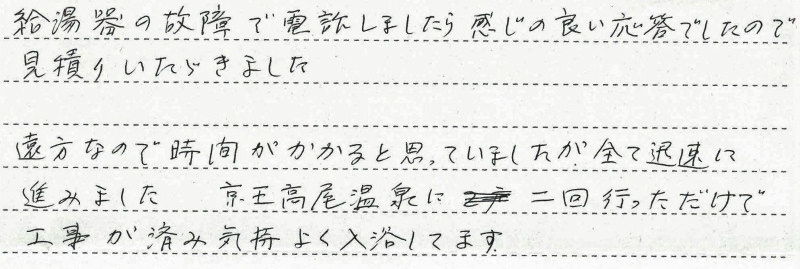 給湯器の故障で電話しましたら感じの良い応答でしたので
見積りいただきました
遠方なので時間がかかると思っていましたが全て迅速に
進みました 京王高尾温泉に 二回行っただけで
工事が済み気持よく入浴してます